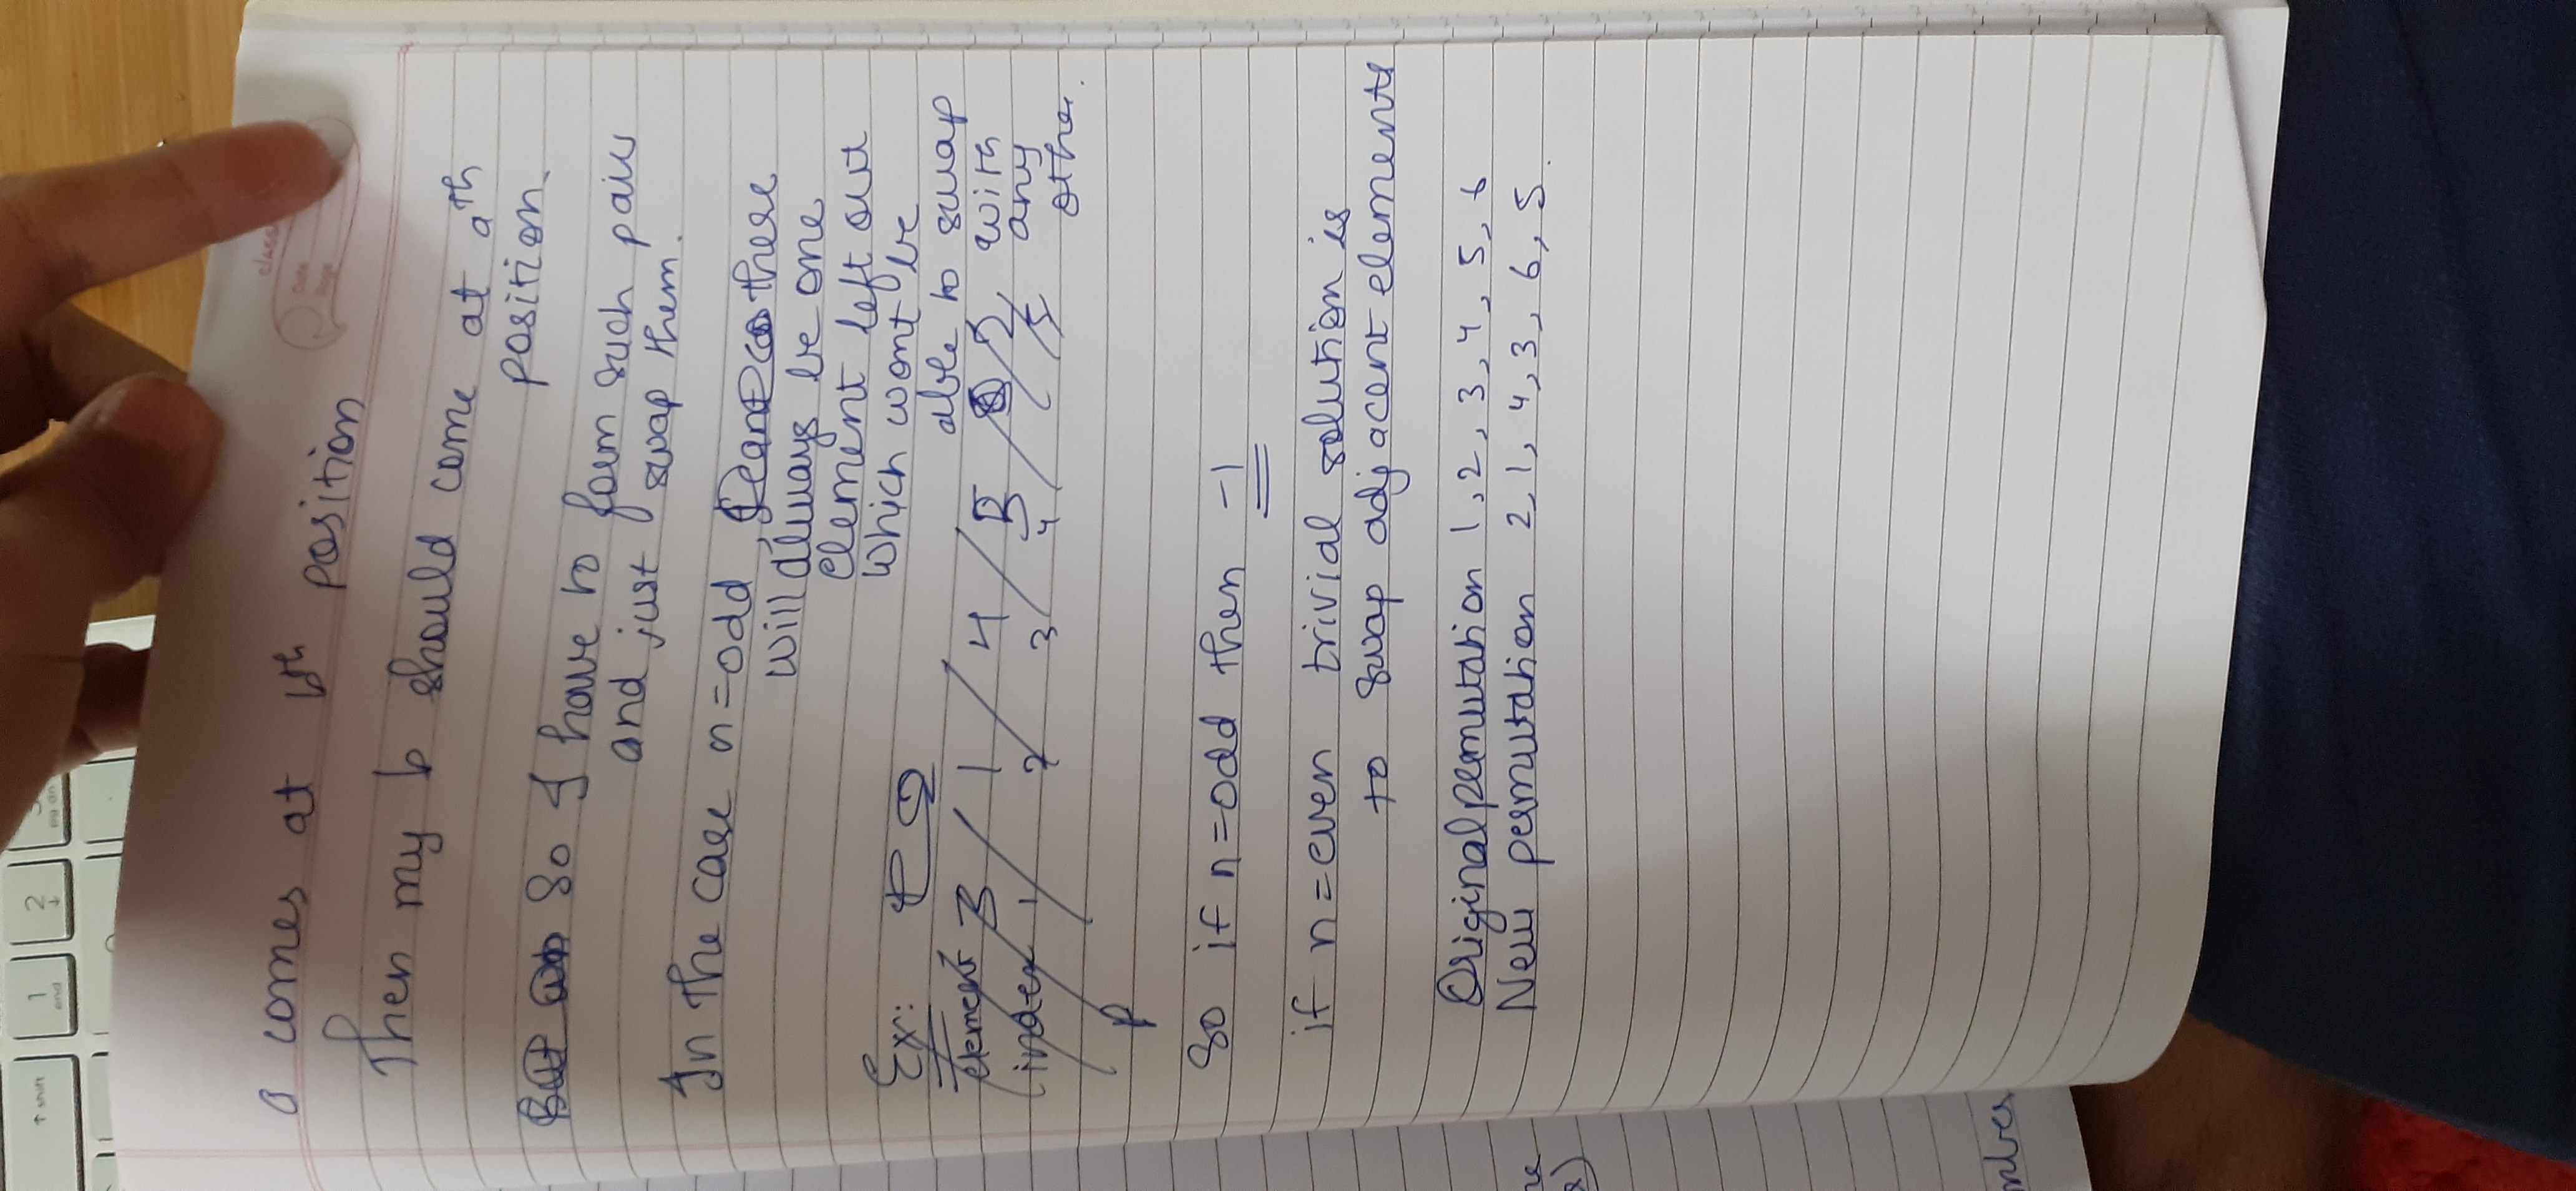 ↑ shift
1
end
2
↓
pg dn
class
Date
Page
a comes at bth position
Then my b should come at ath
position.
So I have to form such pairs
and just swap them.
In the case n=odd, there
will always be one
element left out
which wont be
able to swap
with
any
other.
Ex:
element 3 1 4 5 2
index 1 2 3 4 5
P
So if n=odd then -1
if n=even trivial solution is
to swap adjacent elements
Original permutation 1, 2, 3, 4, 5, 6
New permutation 2, 1, 4, 3, 6, 5.